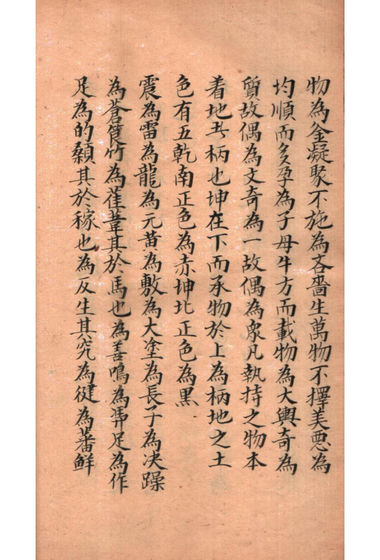 物為釜凝聚不施為吝嗇生萬物不擇美惡為
均順而多孕為子母牛方而載物為大輿奇為
質故偶為文奇為一故偶為衆凡執持之物本
着地其柄也坤在下而承物於上為柄地之土
色有五乾南正色為赤坤北正色為黑
震為雷為龍為元黄為敷為大塗為長子為决躁
為蒼筤竹為萑葦其於馬也為善鳴為馵足為作
足為的顙其於稼也為反生其究為健為蕃鮮